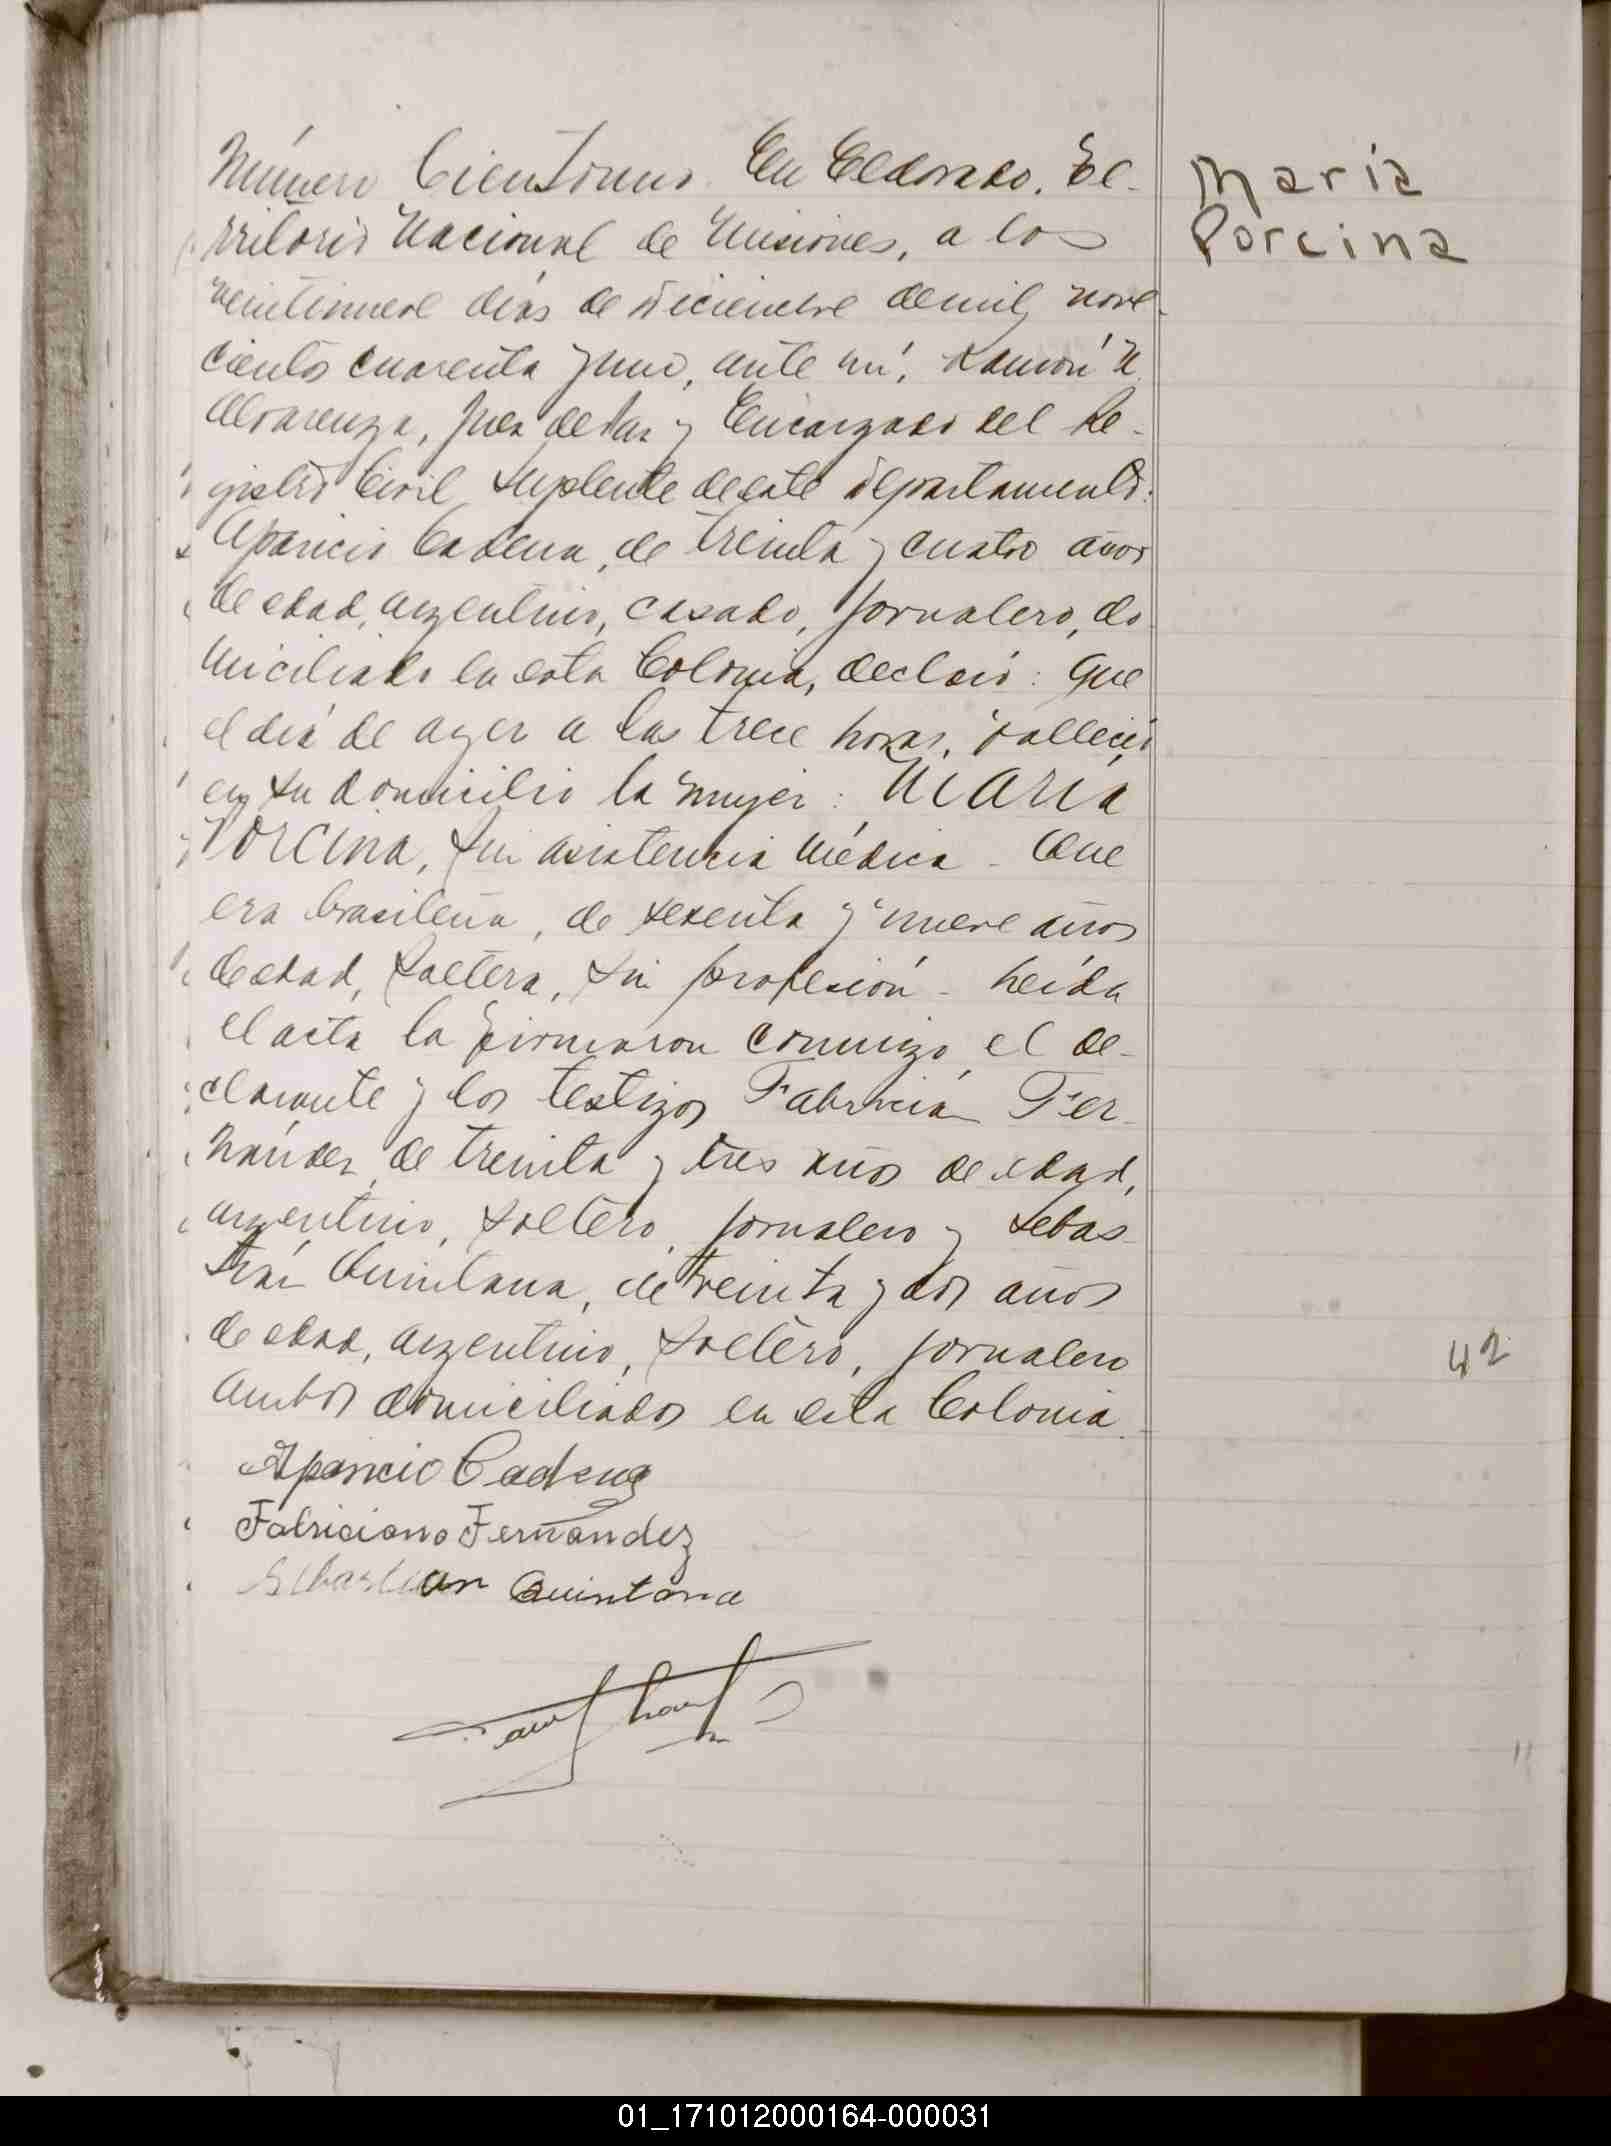 Número Ciento uno. En Eldorado. Te-
rritorio Nacional de Misiones, a los
veintinueve días de diciembre de mil nove-
cientos cuarenta y uno, ante mí, Ramón
Alvarenga, Juez de Paz y Encargado del Re-
gistro Civil Suplente de este departamento:
Aparicio Cadena, de treinta y cuatro años
de edad, argentino, casado, jornalero, do
miciliado en esta Colonia, declaró: Que
el día de ayer a las trece horas, falleció
en su domicilio la mujer: MARIA
PORCINA, sin asistencia médica - Que
era brasileña, de sesenta y nueve años
de edad, soltera, sin profesión - Leída
el acta la firmaron conmigo, el de-
clarante y los testigos Fabricián Fer-
nández, de treinta y tres años de edad,
argentino, soltero, jornalero y Sebas-
tián Quintana, de treinta y dos años
de edad, argentino, soltero, jornalero
ambos domiciliados en esta Colonia.
Aparicio Cadena
Fabriciano Fernandez
Sebastian Quintana
Maria
Porcina
42
01_171012000164-000031